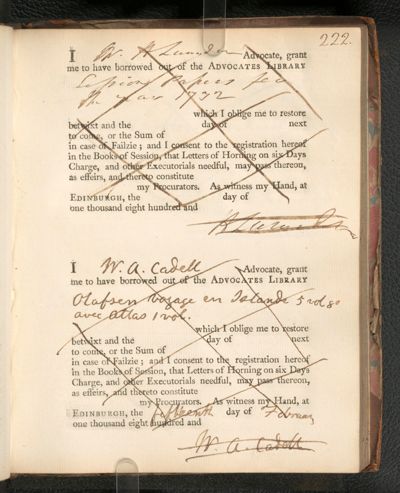 222.
I W. A Advocate, grant
me to have borrowed out of the ADVOCATES LIBRARY
Session Papers for
the year 1732
which I oblige me to restore
betwixt and the day of next
to come, or the Sum of
in case of Failzie; and I consent to the registration hereof
in the Books of Session, that Letters of Horning on six Days
Charge, and other Executorials needful, may pass thereon,
as effeirs, and thereto constitute
my Procurators. As witness my Hand, at
EDINBURGH, the day of
one thousand eight hundred and
I W. A. Cadell Advocate, grant
me to have borrowed out of the ADVOCATES LIBRARY
Olafsen Voyage en Islande 5 vol 8o
avec atlas 1 vol.
which I oblige me to restore
betwixt and the day of next
to come, or the Sum of
in case of Failzie; and I consent to the registration hereof
in the Books of Session, that Letters of Horning on six Days
Charge, and other Executorials needful, may pass thereon,
as effeirs, and thereto constitute
my Procurators. As witness my Hand, at
EDINBURGH, the fifteenth day of February
one thousand eight hundred and
W. A. Cadell